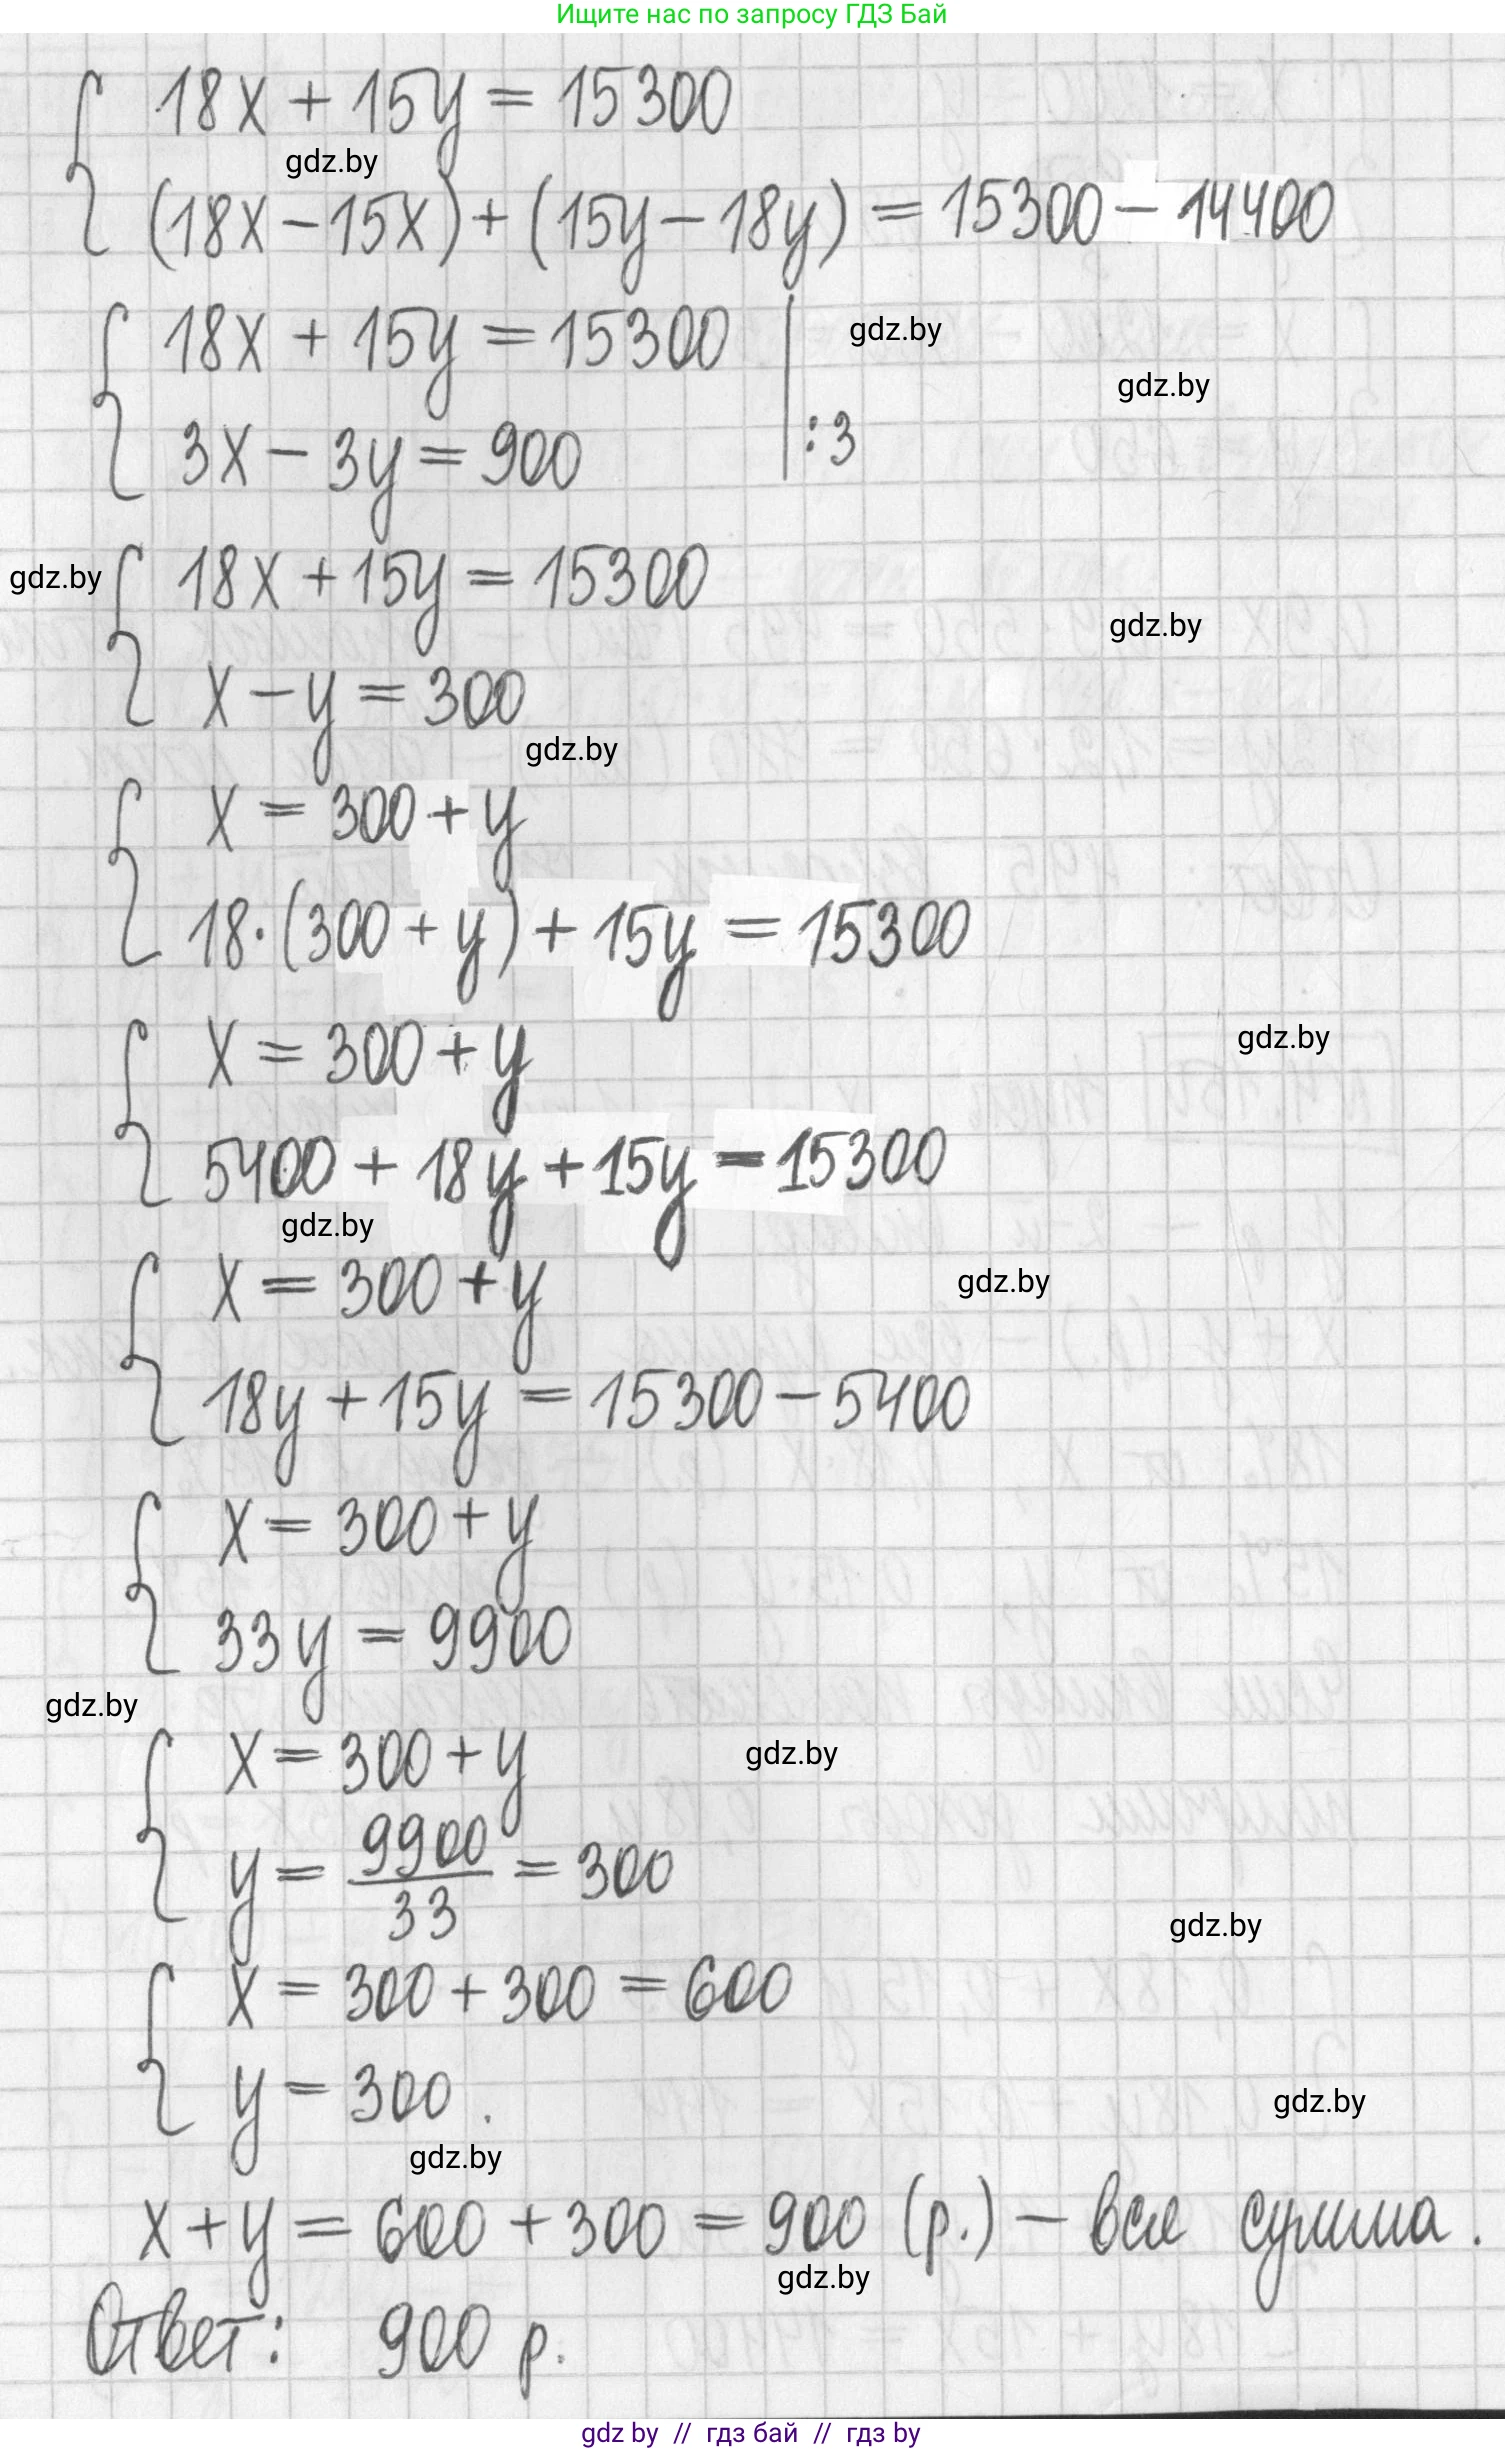 Ищите нас по запросу ГДЗ Бай
18x + 15y = 15300
gdz.by
(18x - 15x) + (15y - 18y) = 15300 - 14400
18x + 15y = 15300
gdz.by
gdz.by
3x - 3y = 900 | :3
gdz.by
18x + 15y = 15300
gdz.by
x - y = 300
gdz.by
x = 300 + y
18·(300 + y) + 15y = 15300
x = 300 + y
gdz.by
5400 + 18y + 15y = 15300
gdz.by
x = 300 + y
gdz.by
18y + 15y = 15300 - 5400
x = 300 + y
33y = 9900
gdz.by
x = 300 + y
gdz.by
y = 9900/33 = 300
gdz.by
x = 300 + 300 = 600
y = 300.
gdz.by
gdz.by
x + y = 600 + 300 = 900 (р.) - вся сумма.
gdz.by
Ответ: 900 р.
gdz by // гдз бай // гдз by